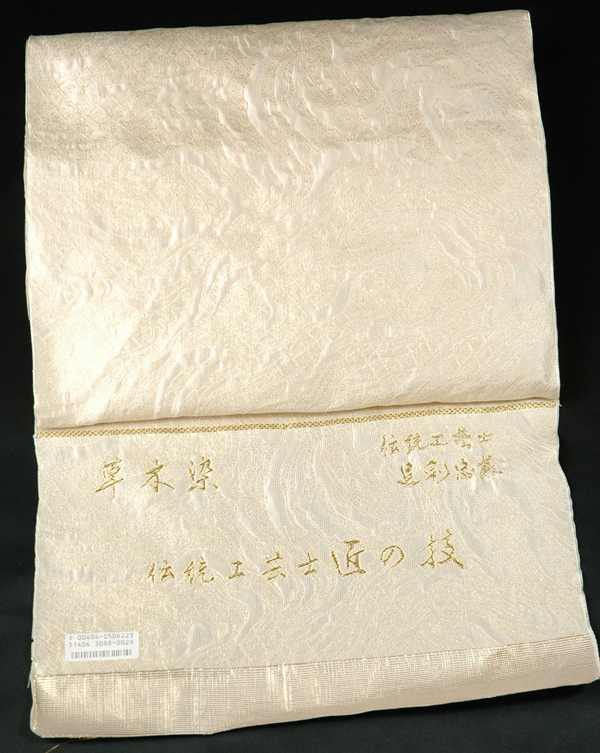 伝統工藝士
草木染
伝統工芸士匠の技
V 00404-0506223
51406 3088-0029